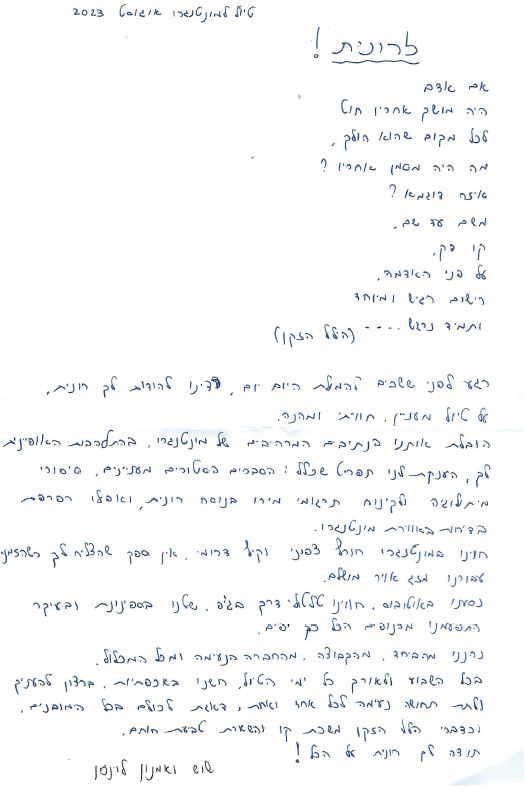 טיול למונטנגרו אוגוסט 2023
לרונית!
אם אדם
היה מושך אחריו חוט
לכל מקום שהוא הולך,
מה היה מסמן אחריו?
איזה דוגמא?
משם עד שם,
קו דק,
על פני האדמה,
רישום רגיש ומיוחד
ותמיד נרגש .... (הלל הזקן)
רגע לפני ששבים להמולת היום יום, רצינו להודות לך רונית,
על טיול מעניין, חוויתי ומהנה.
הובלת אותנו בנתיבים המרהיבים של מונטנגרו, בהתלהבות האופיינית
לך, הענקת לנו תפריט שכלל: הסברים הסטורים מעניינים, סיפורי
מיתולוגיה ולקינוח תרגומי מירו בנוסח רונית, ואפילו רפרפת
בדיחות באווירת מונטנגרו.
חווינו במונטנגרו חורף צפוני וקיץ דרומי, אין ספק שהצליח לך כשהזמנת
עבורנו מזג אויר מושלם.
נסענו באוטובוס, חווינו טלטולי דרך בג'יפ, שטנו בספינות ובעיקר
התפעמנו מהנופים הכל כך יפים.
נהננו מהביחד, מהקבוצה, מהחברה הנעימה ומכל המכלול.
בכל השבוע ולאורך כל ימי הטיול, חשנו באכפתיות, ברצון להעניק
ולתת תחושה נעימה לכל אחד ואחת, דאגת לכולם בכל המובנים,
וכדברי הלל הזקן משכת קו והשארת טבעת חותם.
תודה לך רונית על הכל!
שוש ואמנון לוינסון